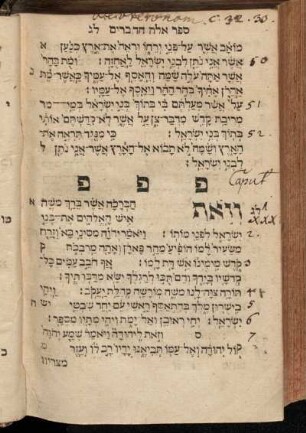 Deuteronom. C. 32. 50.
ספר אלה הדברים לג
מואב אשר על־פני ירחו וראה את־ארץ כנען
אשר אני נתן לבני ישראל לאחזה: ומת בהר 50
אשר אתה עלה שמה והאסף אל־עמיך כאשר־מת
אהרן אחיך בהר ההר ויאסף אל־עמיו:
על אשר מעלתם בי בתוך בני ישראל במי־מר 51
מריבת קדש מדבר־צן על אשר לא־קדשתם אותי
בתוך בני ישראל: כי מנגד תראה את־ 52
הארץ ושמה לא תבוא אל־הארץ אשר־אני נתן ל
לבני ישראל:
פ פ פ
Caput
וזאת הברכה אשר ברך משה לג
איש האלהים את־בני XXX
ישראל לפני מותו: ויאמר יהוה מסיני בא וזרח
משעיר למו הופיע מהר פארן ואתה מרבבת
קדש מימינו אש דת למו: אף חבב עמים כל־
קדשיו בידך והם תכו לרגלך ישא מדברתיך:
תורה צוה־לנו משה מורשה קהלת יעקב: ויהי 4
בישרון מלך בהתאסף ראשי עם יחד שבטי 5
ישראל: יחי ראובן ואל־ימת ויהי מתיו מספר: 6
ס וזאת ליהודה ויאמר שמע יהוה 7
קול יהודה ואל־עמו תביאנו ידיו רב לו ועזר
מצריו